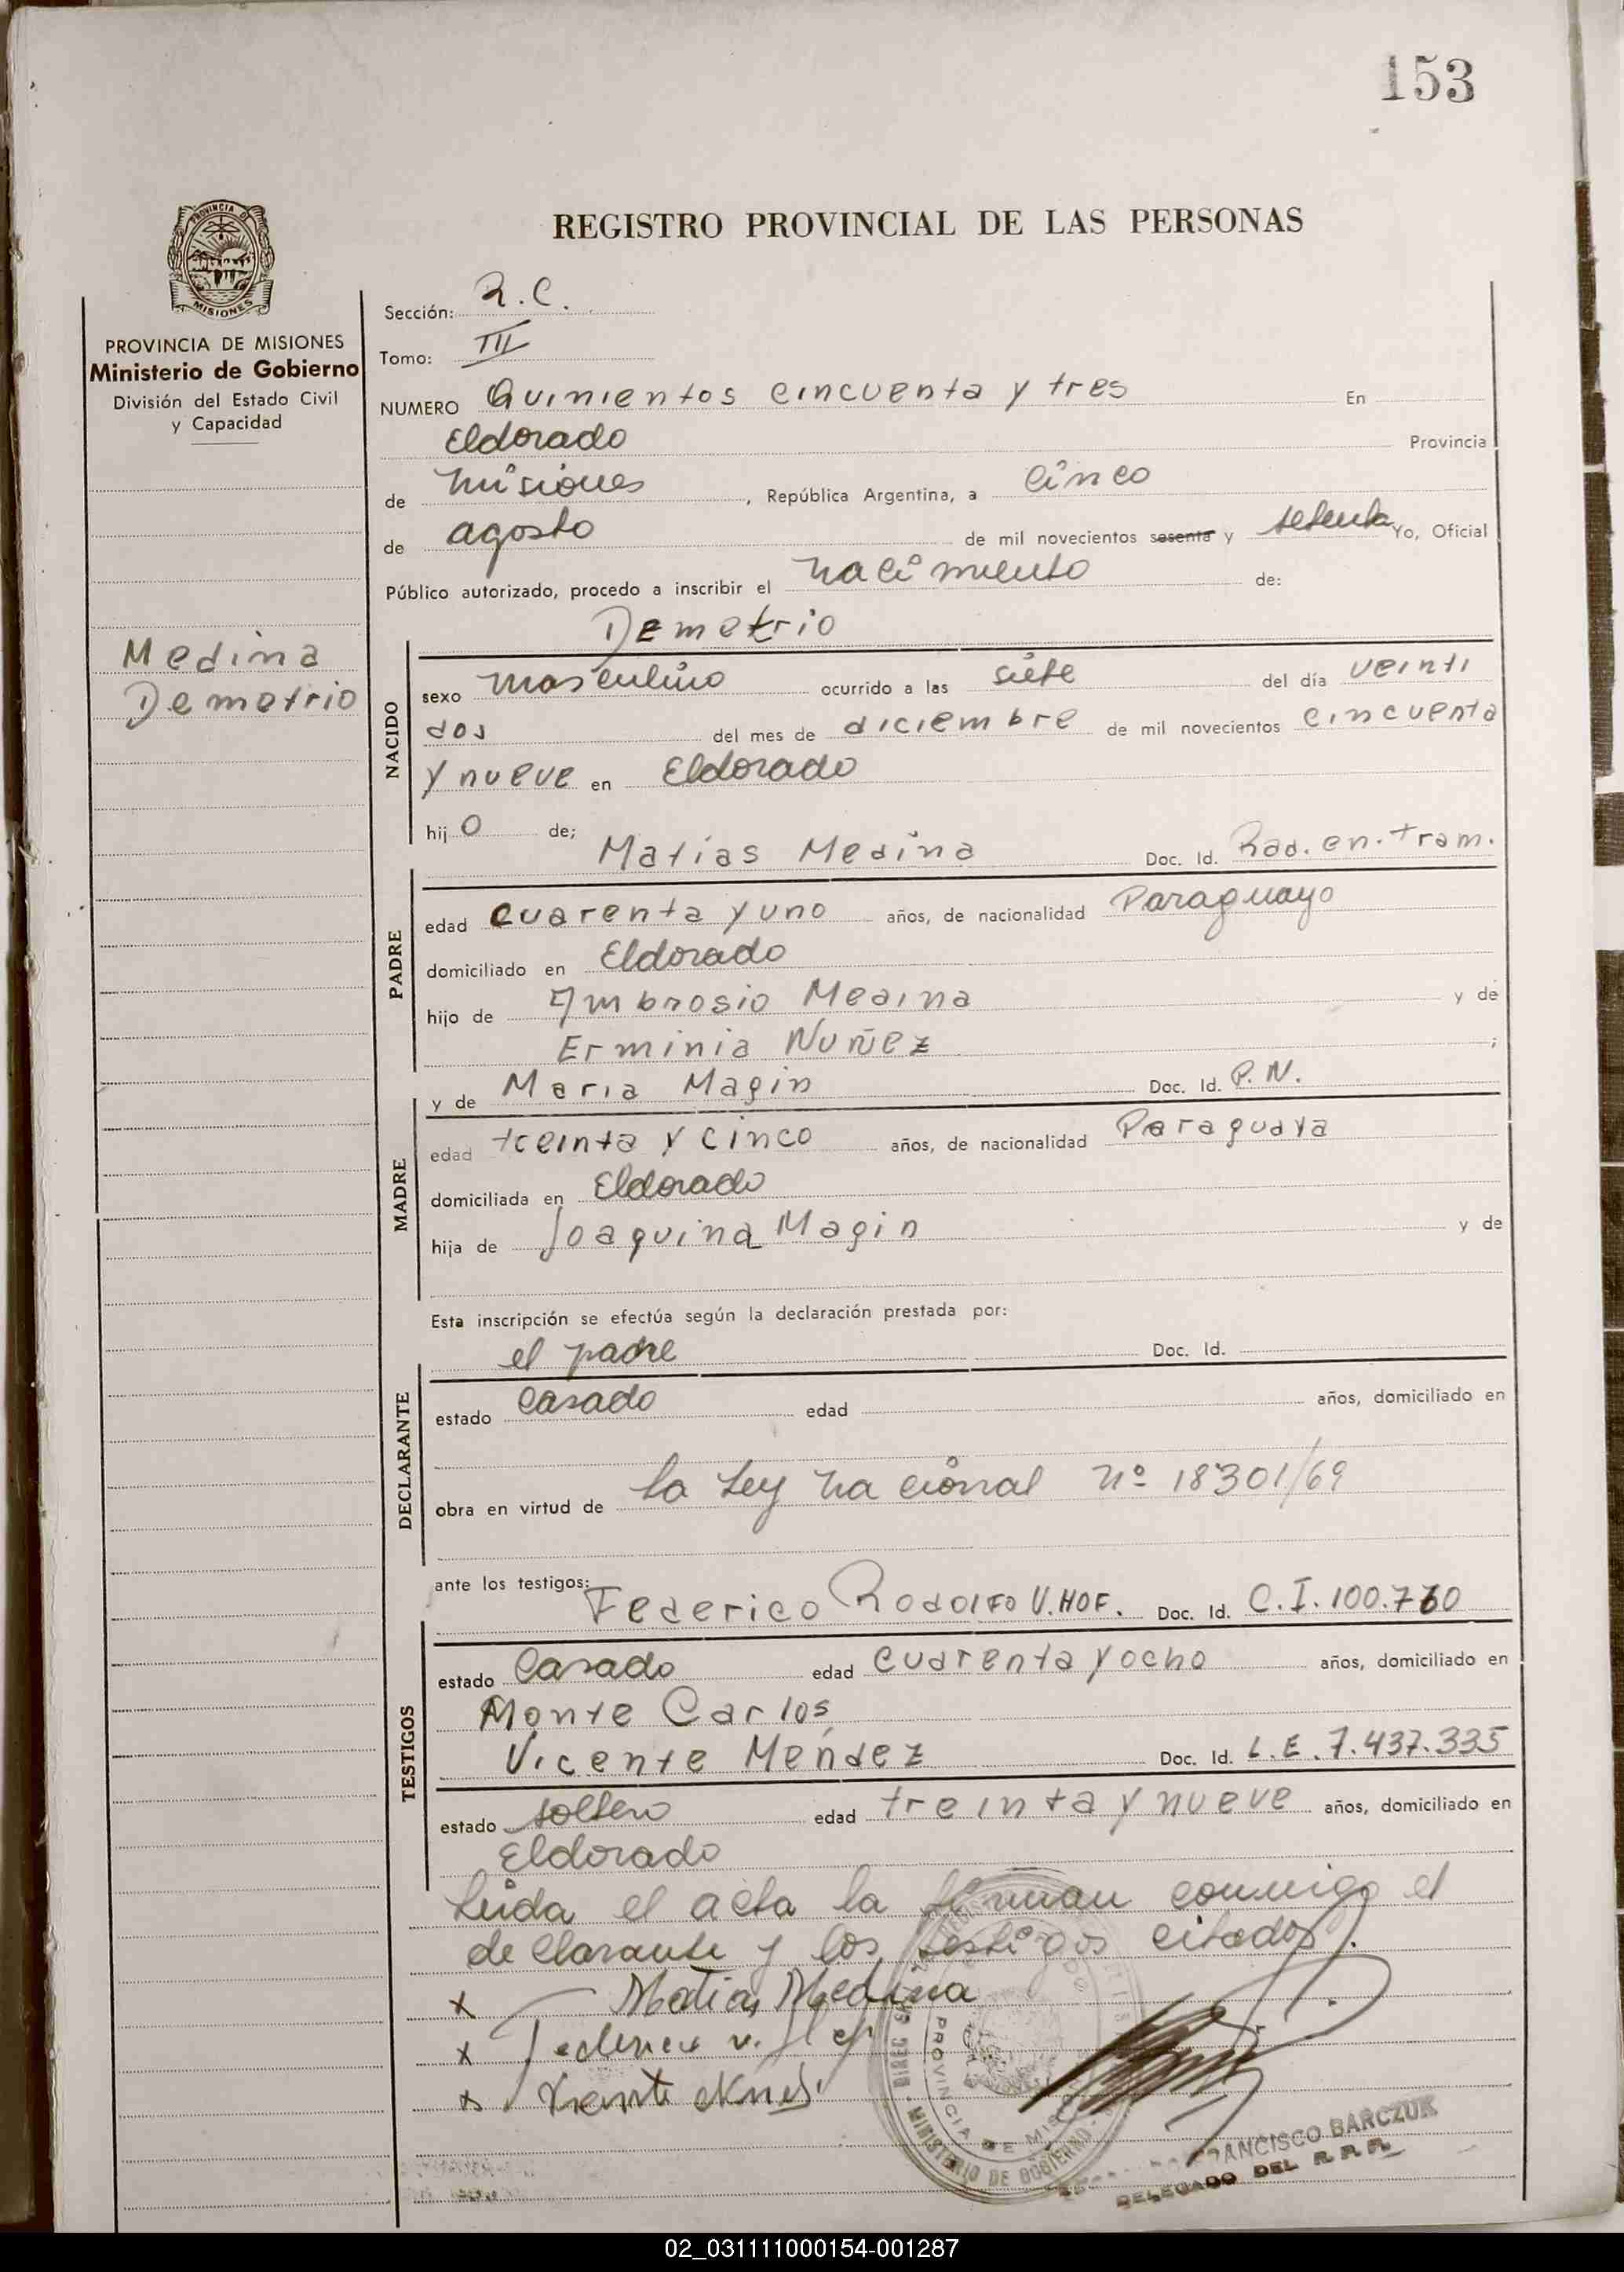 153
PROVINCIA DE
MISIONES
REGISTRO PROVINCIAL DE LAS PERSONAS
PROVINCIA DE MISIONES
Ministerio de Gobierno
División del Estado Civil
y Capacidad
Medina
Demetrio
Sección: R.C.
Tomo: III
NUMERO Quinientos cincuenta y tres En
Eldorado Provincia
de Misiones, República Argentina, a cinco
de agosto de mil novecientos sesenta y setenta Yo, Oficial
Público autorizado, procedo a inscribir el nacimiento de:
Demetrio
NACIDO
sexo masculino ocurrido a las siete del día veinti
dos del mes de diciembre de mil novecientos cincuenta
y nueve en Eldorado
hijo de;
Matias Medina Doc. Id. Rad. en. Tram.
PADRE
edad cuarenta y uno años, de nacionalidad Paraguayo
domiciliado en Eldorado
hijo de Ambrosio Medina y de
Erminia Nuñez ;
y de Maria Magin Doc. Id. P.N.
MADRE
edad treinta y cinco años, de nacionalidad Paraguaya
domiciliada en Eldorado
hija de Joaquina Magin y de
Esta inscripción se efectúa según la declaración prestada por:
el padre Doc. Id.
DECLARANTE
estado casado edad años, domiciliado en
obra en virtud de la Ley nacional nº 18301/69
ante los testigos:
Federico Rodolfo V. HOF. Doc. Id. C.I. 100.760
TESTIGOS
estado casado edad cuarenta y ocho años, domiciliado en
Monte Carlos,
Vicente Mendez Doc. Id. L.E. 7.437.335
estado soltero edad treinta y nueve años, domiciliado en
Eldorado
Leida el acta la firman conmigo el
declarante y los testigos citados.
x Matias Medina
x Federico v. Hof
x Vicente
PROVINCIA DE MISIONES
MINISTERIO DE GOBIERNO
FRANCISCO BARCZUK
DELEGADO DEL R.P.P.
02_031111000154-001287